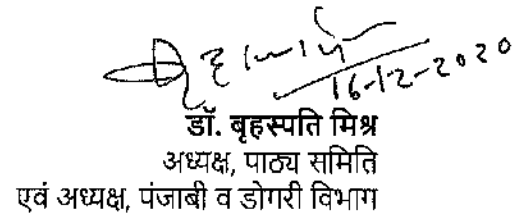 बृहस्पति
16-12-2020
डॉ. बृहस्पति मिश्र
अध्यक्ष, पाठ्य समिति
एवं अध्यक्ष, पंजाबी व डोगरी विभाग